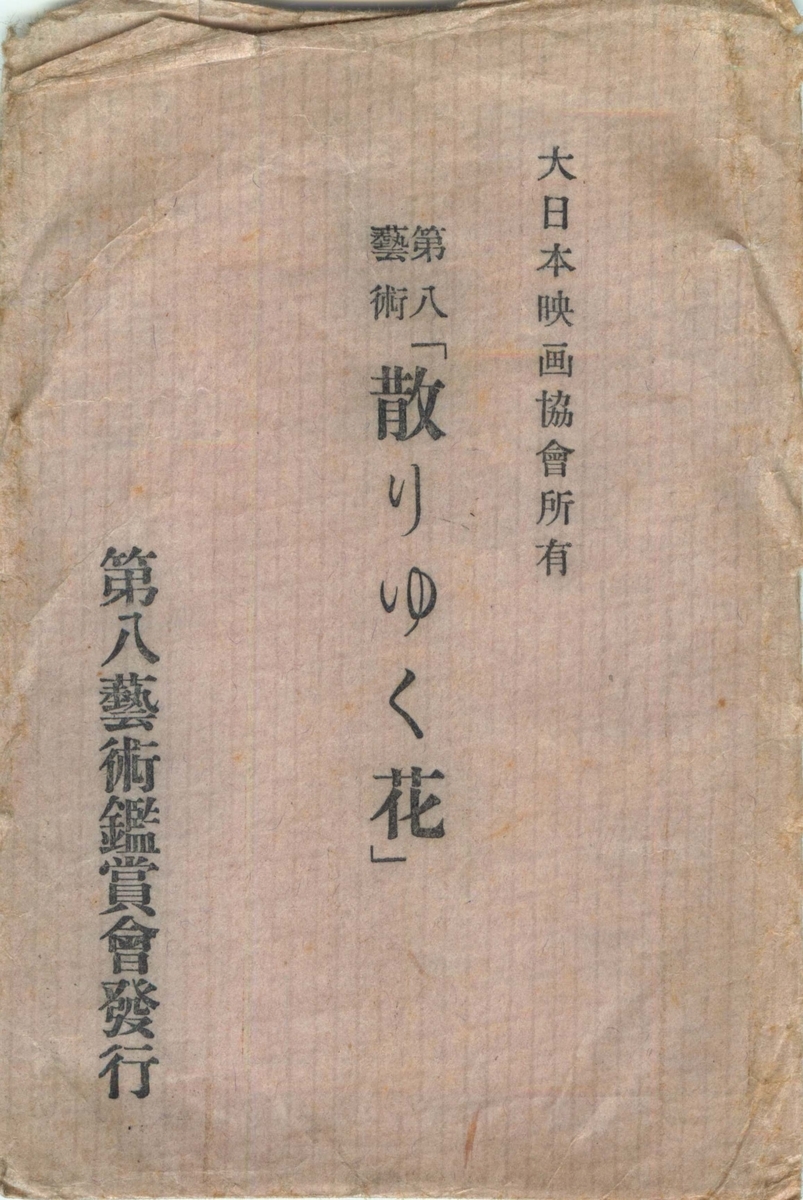 大日本映画協會所有
第八藝術「散りゆく花」
第八藝術鑑賞會發行